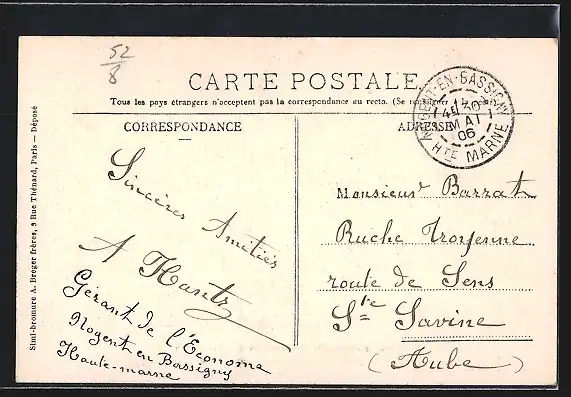 52
8
CARTE POSTALE
Tous les pays étrangers n'acceptent pas la correspondance au recto. (Se renseigner à la poste)
CORRESPONDANCE
ADRESSE
NOGENT-EN-BASSIGNY
MAI
06
HTE MARNE
Simi-bromure A. Breger frères, 9 Rue Thénard, Paris — Déposé
Sincères Amitiés
A Hantz
Gérant de l'Économe
Nogent en Bassigny
Haute-marne
Monsieur Barrat
Ruche Troyenne
route de Sens
Ste Savine
(Aube)